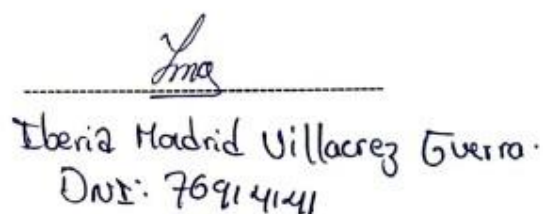 Iberia Madrid Villacrez Guerra.
DNI: 76914141